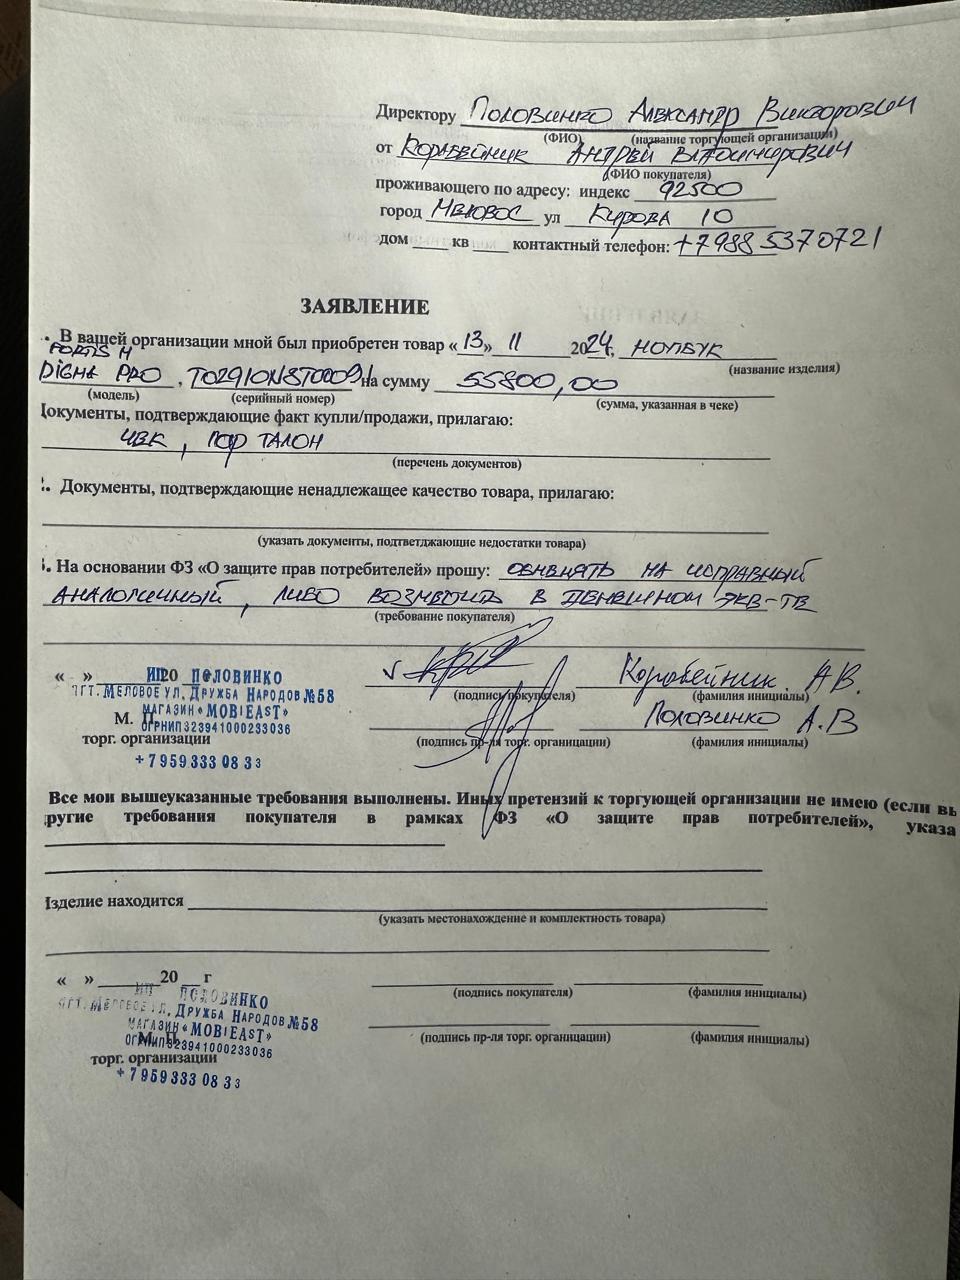 Директору Половинко Александр Викторович
(ФИО) (название торгующей организации)
от Коравейник Андрей Владимирович
(ФИО покупателя)
проживающего по адресу: индекс 92500
город Меловое ул Кирова 10
дом ____ кв ____ контактный телефон: +7988 5370721
ЗАЯВЛЕНИЕ
. В вашей организации мной был приобретен товар «13» 11 2024, НОУТБУК
FORTIS M
DIGMA PRO, на сумму 55800,00
(название изделия)
(модель) (серийный номер) (сумма, указанная в чеке)
Документы, подтверждающие факт купли/продажи, прилагаю:
ЧЕК, ТАЛОН
(перечень документов)
. Документы, подтверждающие ненадлежащее качество товара, прилагаю:
(указать документы, подтветджающие недостатки товара)
. На основании ФЗ «О защите прав потребителей» прошу: ОБМЕНЯТЬ НА ИСПРАВНЫЙ
АНАЛОГИЧНЫЙ, ЛИБО ВОЗМЕСТИТЬ В ДЕНЕЖНОМ ЭКВ-ТЕ
(требование покупателя)
« » 20 ИП ПОЛОВИНКО Коробейник АВ.
ПГТ. МЕЛОВОЕ УЛ. ДРУЖБА НАРОДОВ №58 (подпись покупателя) (фамилия инициалы)
МАГАЗИН «MOBIEAST»
М. П. Половинко А.В
ОГРНИП323941000233036
торг. организации (подпись пр-ля торг. органицации) (фамилия инициалы)
+7 959 333 08 33
Все мои вышеуказанные требования выполнены. Иных претензий к торгующей организации не имею (если
другие требования покупателя в рамках ФЗ «О защите прав потребителей», указа
Изделие находится
(указать местонахождение и комплектность товара)
« » 20 г
ИП ПОЛОВИНКО (подпись покупателя) (фамилия инициалы)
ПГТ. МЕЛОВОЕ УЛ. ДРУЖБА НАРОДОВ №58
МАГАЗИН «MOBIEAST»
М. П.
ОГРНИП323941000233036 (подпись пр-ля торг. органицации) (фамилия инициалы)
торг. организации
+7 959 333 08 33